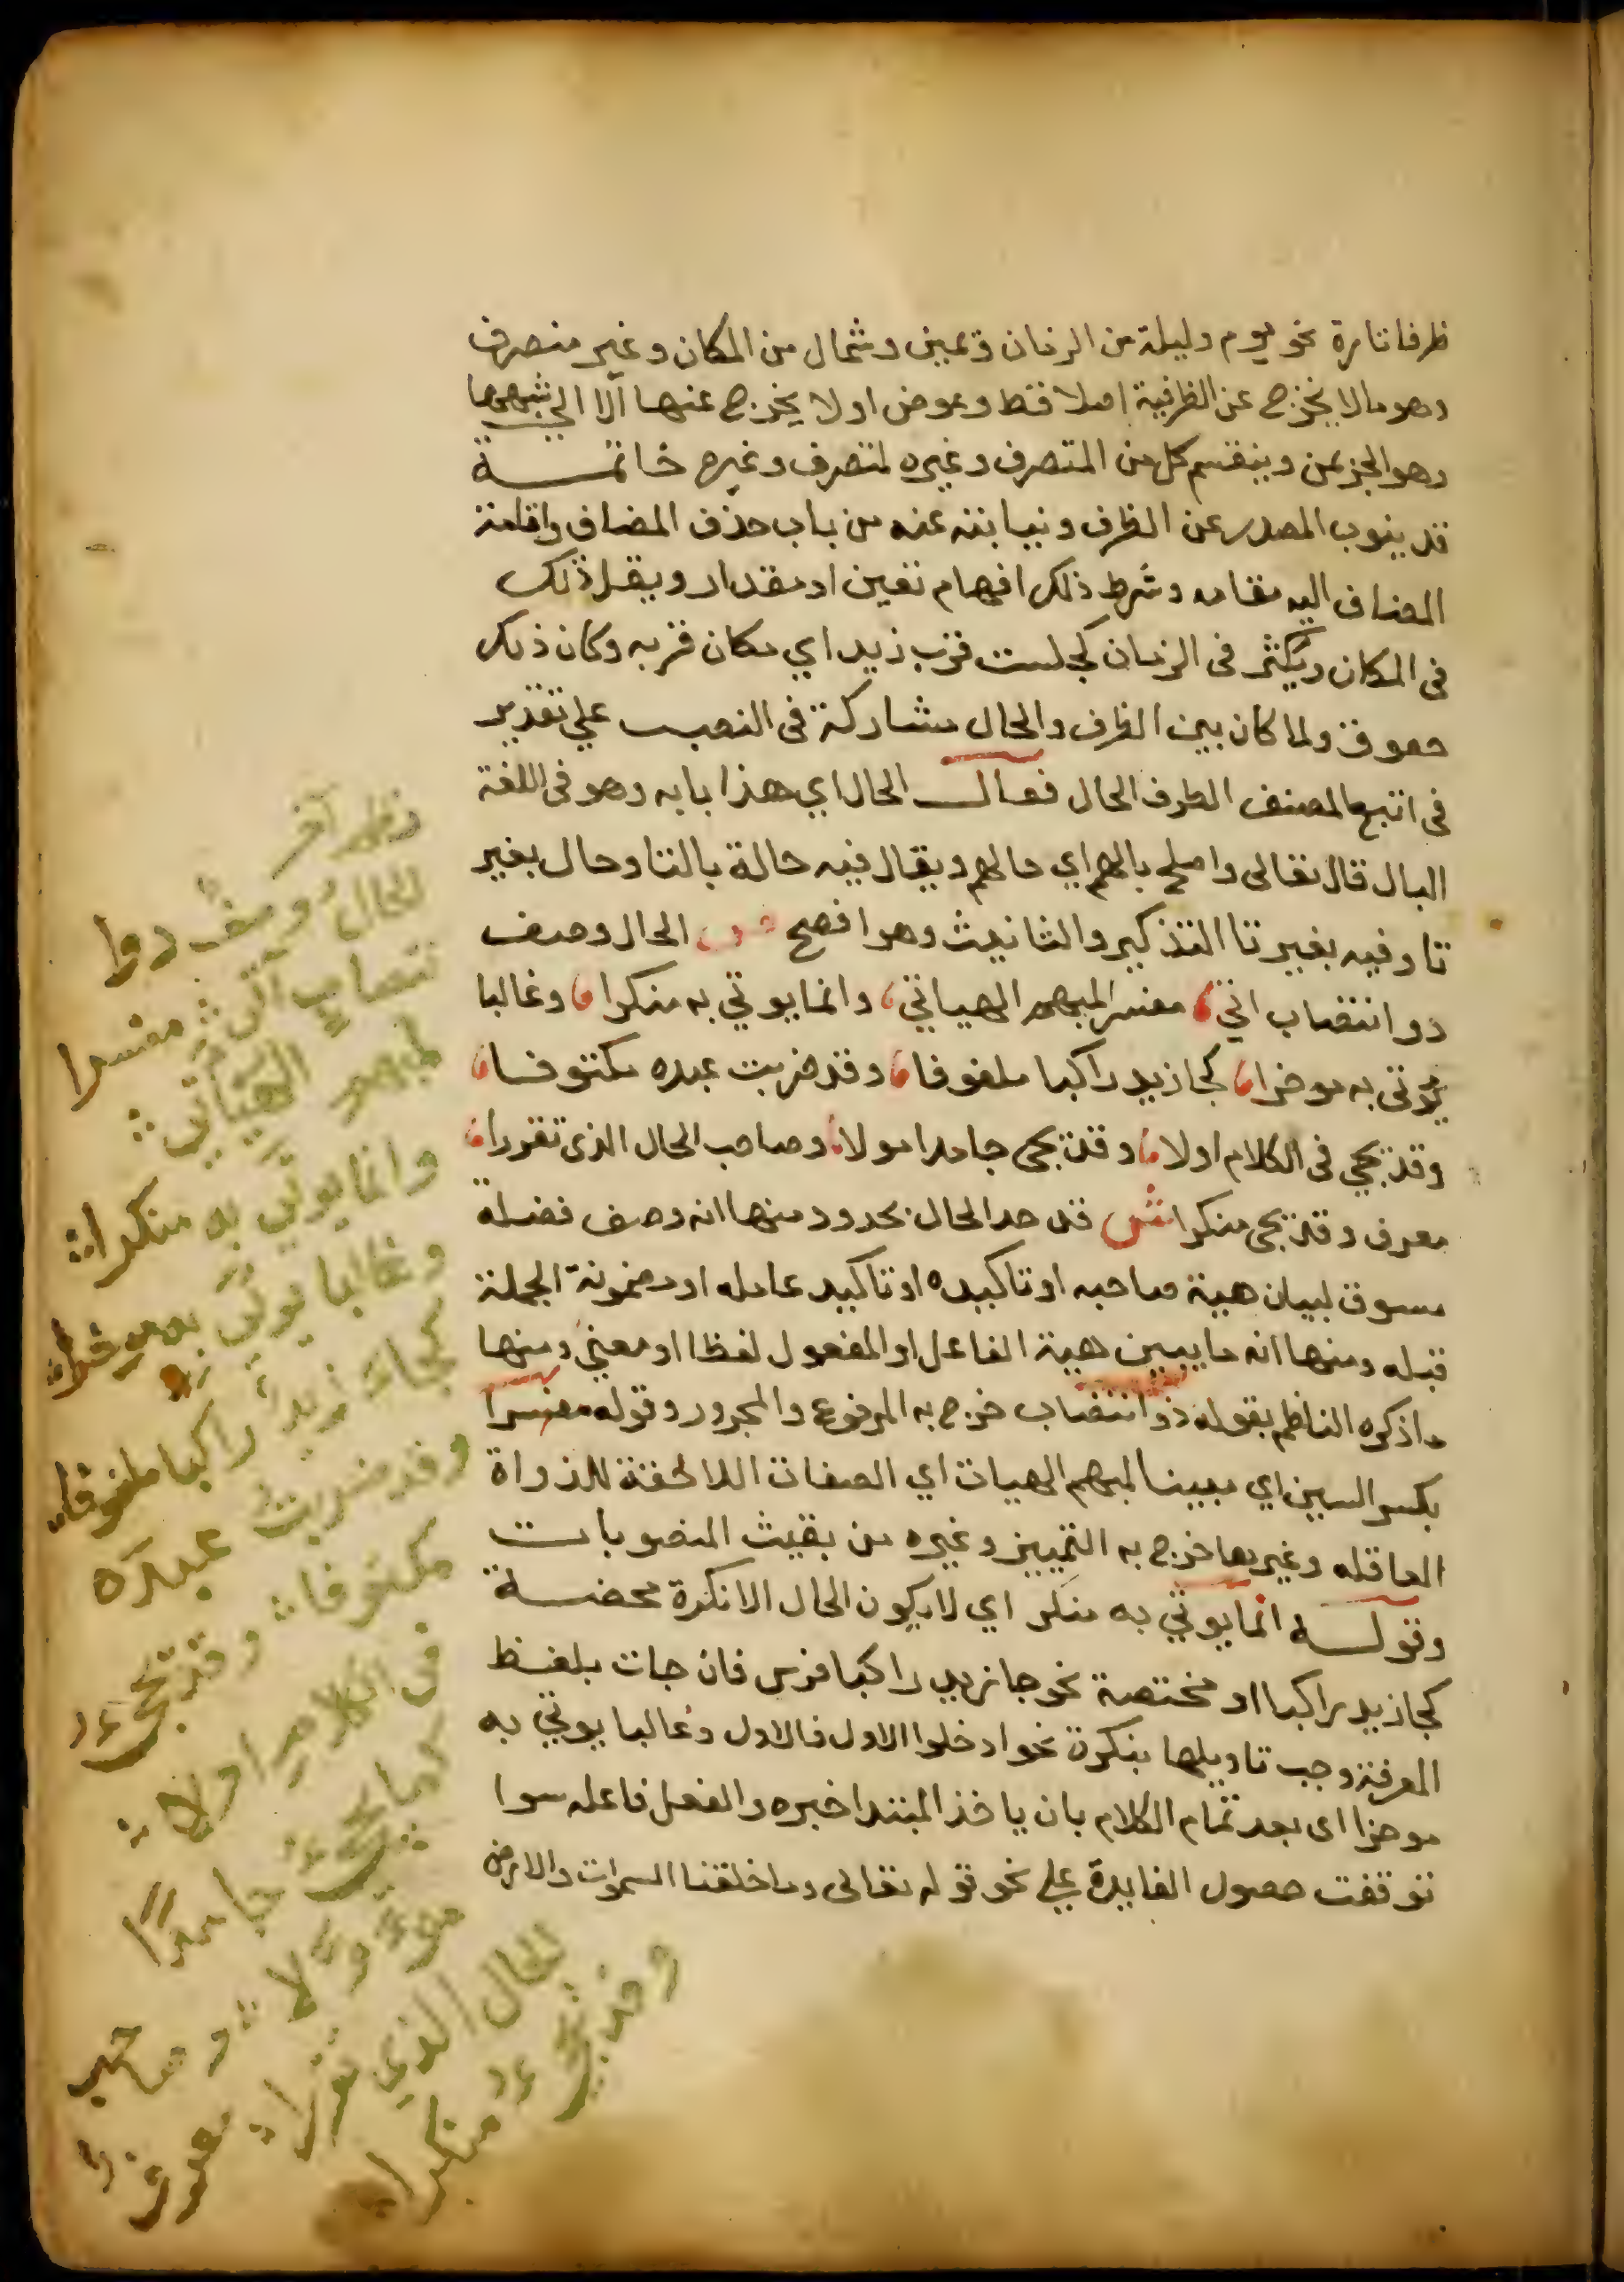 ظرفا تارة نحو يوم وليلة من الزمان ويمين وشمال من المكان وغير متصرف
وهو ما لا يخرج عن الظرفية اصلا فقط وعوض او لا يخرج عنها الا الي شبهها
وهو الجر بمن وينقسم كل من المتصرف وغيره لمتصرف وغيره خاتمـــة
قد ينوب المصدر عن الظرف ونيابته عنه من باب حذف المضاف واقامة
المضاف اليه مقامه وشرط ذلك افهام تعين او مقدار ويقل ذلك
في المكان ويكثر في الزمان كجلست قرب زيد اي مكان قربه وكان ذلك
ولما كان بين الظرف والحال مشاركة في النصب علي تقدير
في اتبع المصنف الظرف الحال فقال الحال اي هذا بابه وهو في اللغة
البال قال تعالى واصلح بالهم اي حالهم ويقال فيه حالة بالتا وحال بغير
تا وفيه بغير تا التذكير والتانيث وهو افصح ص الحال وصف
ذو انتصاب اتي مفسر المبهم الهيات وانما يوتي به منكرا وغالبا
يوتى به موخرا كجا زيد راكبا ملفوفا وقد ضربت عبده مكتوفا
وقد يجي في الكلام اولا وقد يجى جامدا مولا وصاحب الحال الذى تقررا
معرف وقد يجى منكرا ش قد حد الحال بحدود منها انه وصف فضلة
مسوق لبيان هيئة صاحبه او تاكيده او تاكيد عامله او مضمونة الجملة
قبله ومنها انه ما يبين هيئة الفاعل او المفعول لفظا او معنى ومنها
ما ذكره الناظم بقوله ذو انتصاب خرج به المرفوع والمجرور وقوله مفسرا
بكسر السين اي مبينا لمبهم الهيات اي الصفات اللاحقة للذواة
العاقله وغيرها خرج به التمييز وغيره من بقيت المنصوبات
وقولـــه انما يوتي به منكر اي لا يكون الحال الا نكرة محضـــة
كجا زيد راكبا او مختصة نحو جا زيد راكبا فرس فان جات بلفظ
المعرفة وجب تاويلها بنكرة نحو ادخلوا الاول فالاول وغالبا يوتي به
موخرا اى بعد تمام الكلام بان ياخذ المبتدا خبره والفعل فاعله سوا
توقفت حصول الفايدة علي نحو قوله تعالى وما خلقنا السموات والارض
نظم آخر
الحال وصف ذوا
نتصاب آتي مفسرا
لمبهم الهيات
وانما يوتى به منكرا
وغالبا يوتى به موخرا
كجاء زيد راكبا ملفوفا
وقد ضربت عبده
مكتوفا وقد يجيء
في الكلام اولا
كما يجيء جامدا
موولا وصاحب
الحال الذي تقررا
معرف
وقد يجيء منكرا